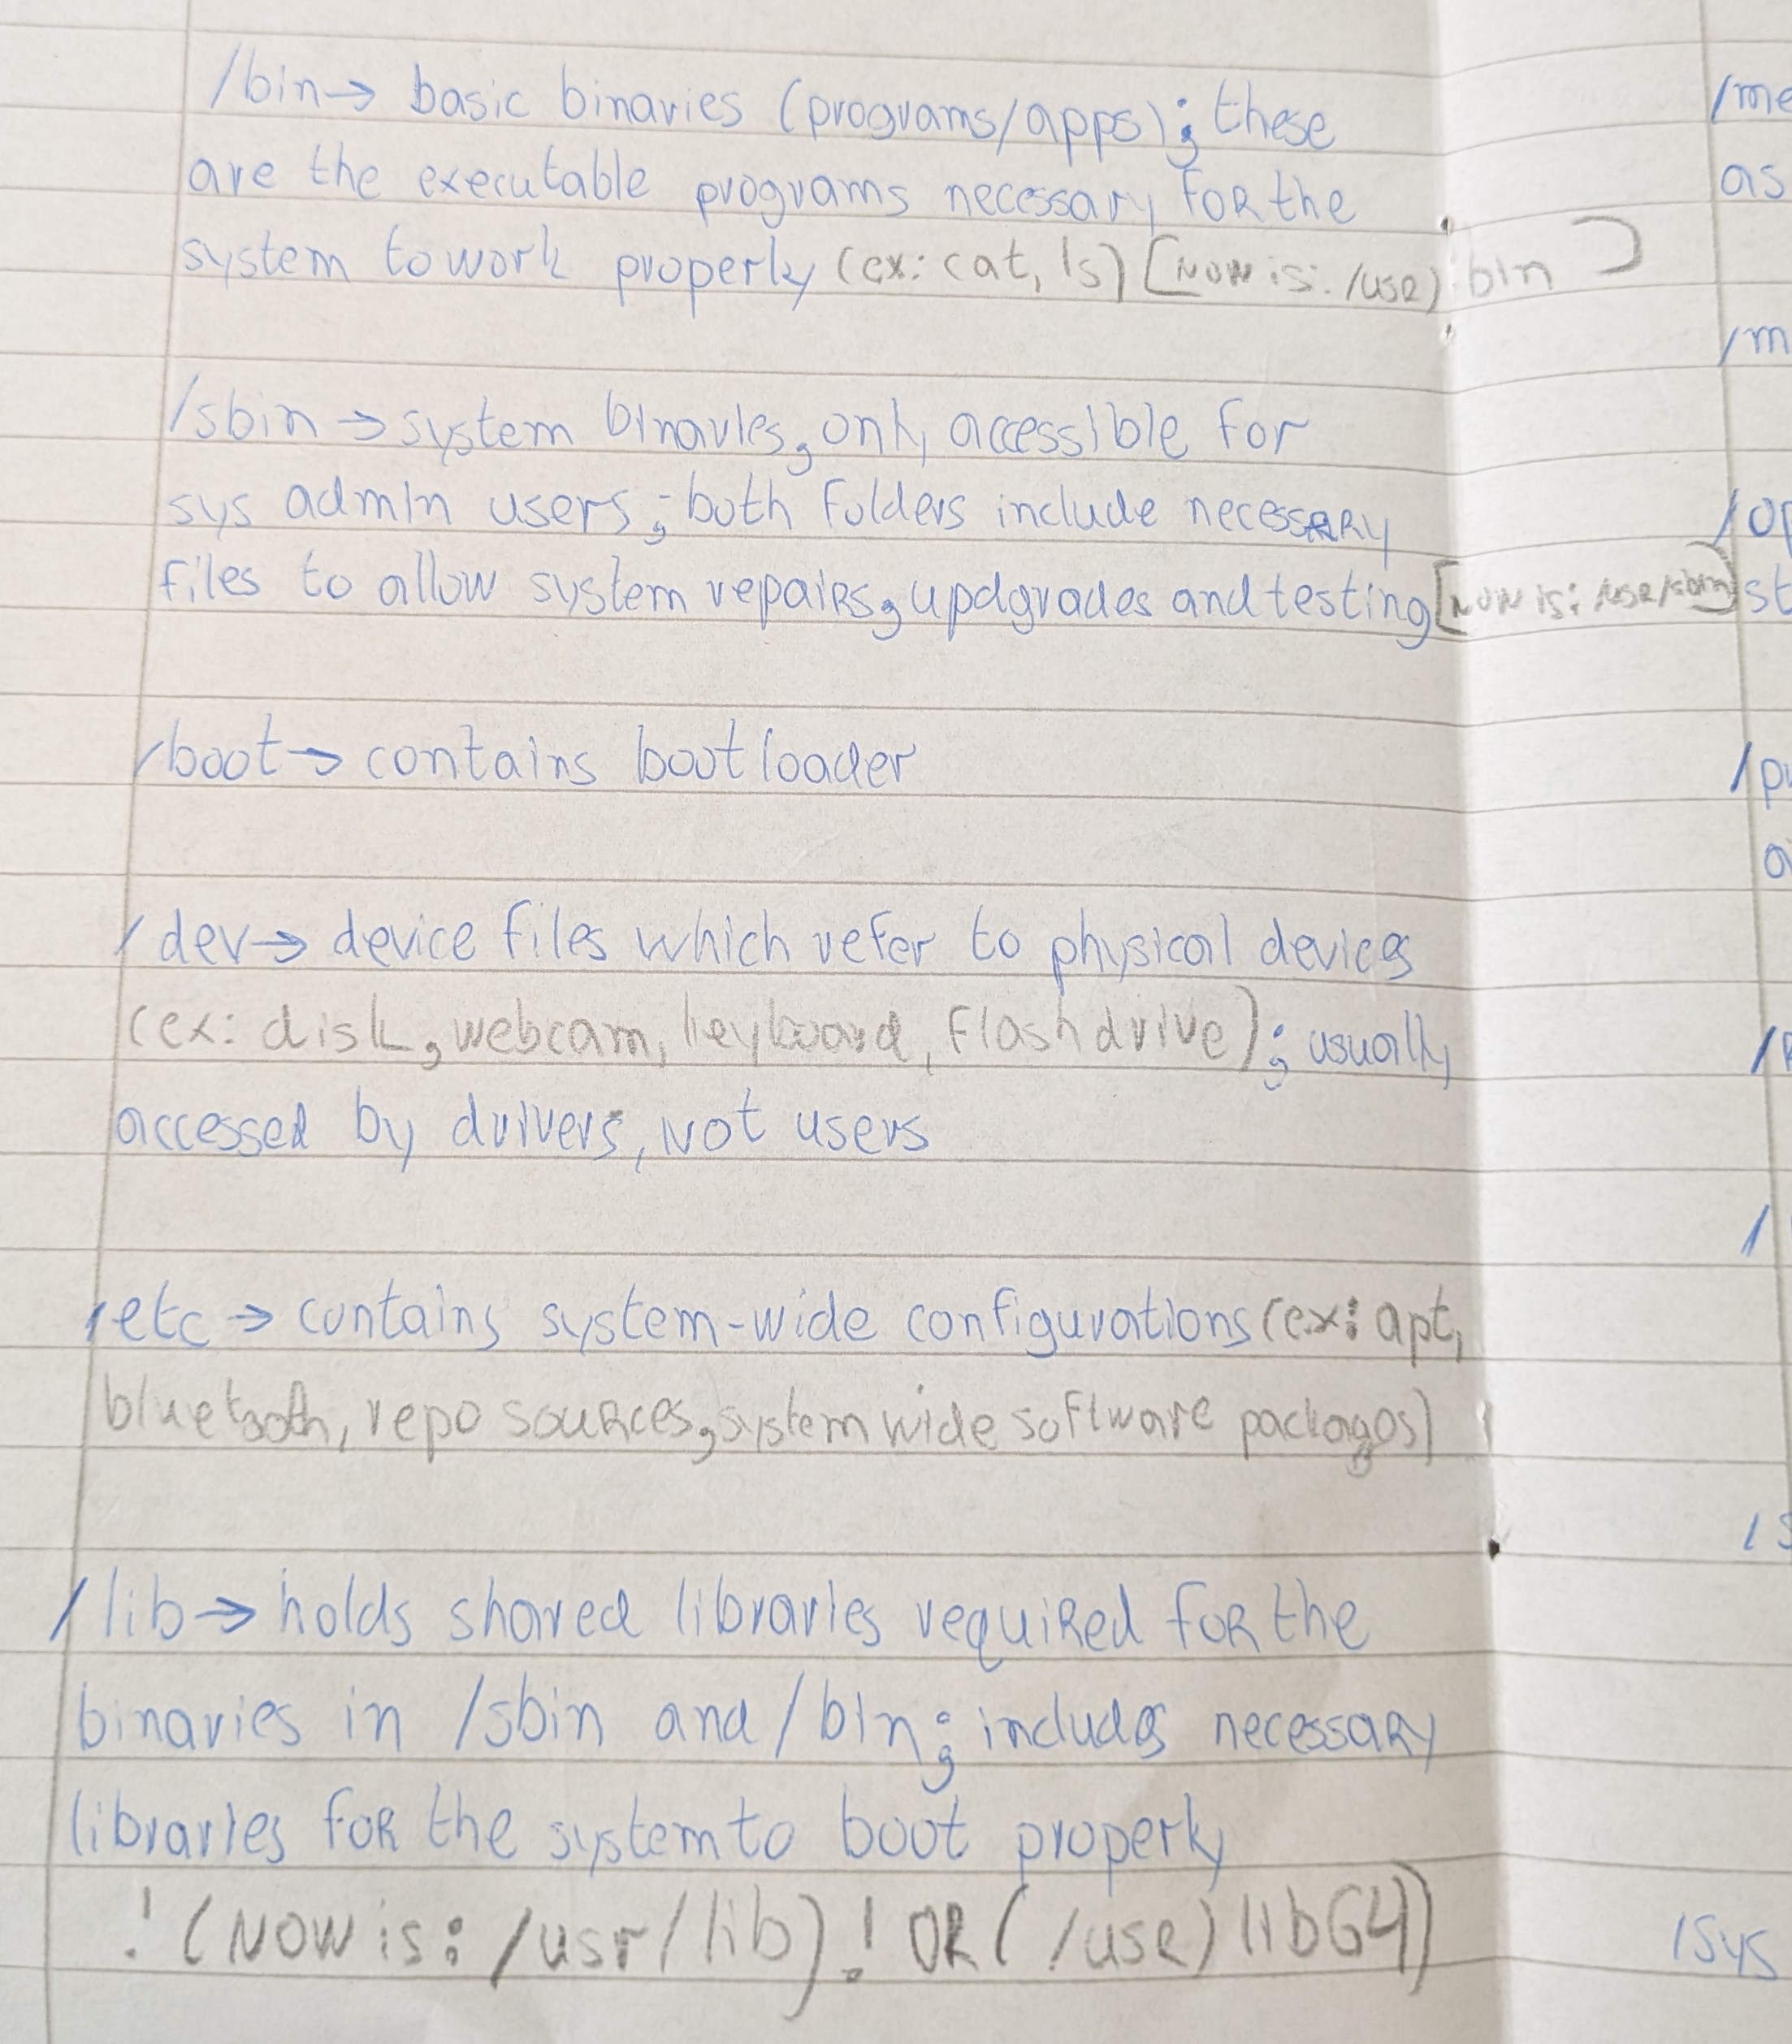 /bin→ basic binaries (programs/apps); these
are the executable programs necessary for the
system to work properly (ex: cat, ls) [Now is: /use) bin ]
/sbin → system binaries, only accessible for
sys admin users; both folders include necessary
files to allow system repairs, updgrades and testing [Now is: /use/sbin]
/boot → contains bootloader
/dev→ device files which refer to physical devices
(ex: disk, webcam, keyboard, flashdrive); usually
accessed by drivers, not users
/etc → contains system-wide configurations (ex: apt,
bluetooth, repo sources, system wide software packages)
/lib → holds shared libraries required for the
binaries in /sbin and /bin; includes necessary
libraries for the system to boot properly
! (NOW is: /usr/lib)! OR ( /use) lib64)
/me
as
/m
/op
st
/p
/
/s
/sys